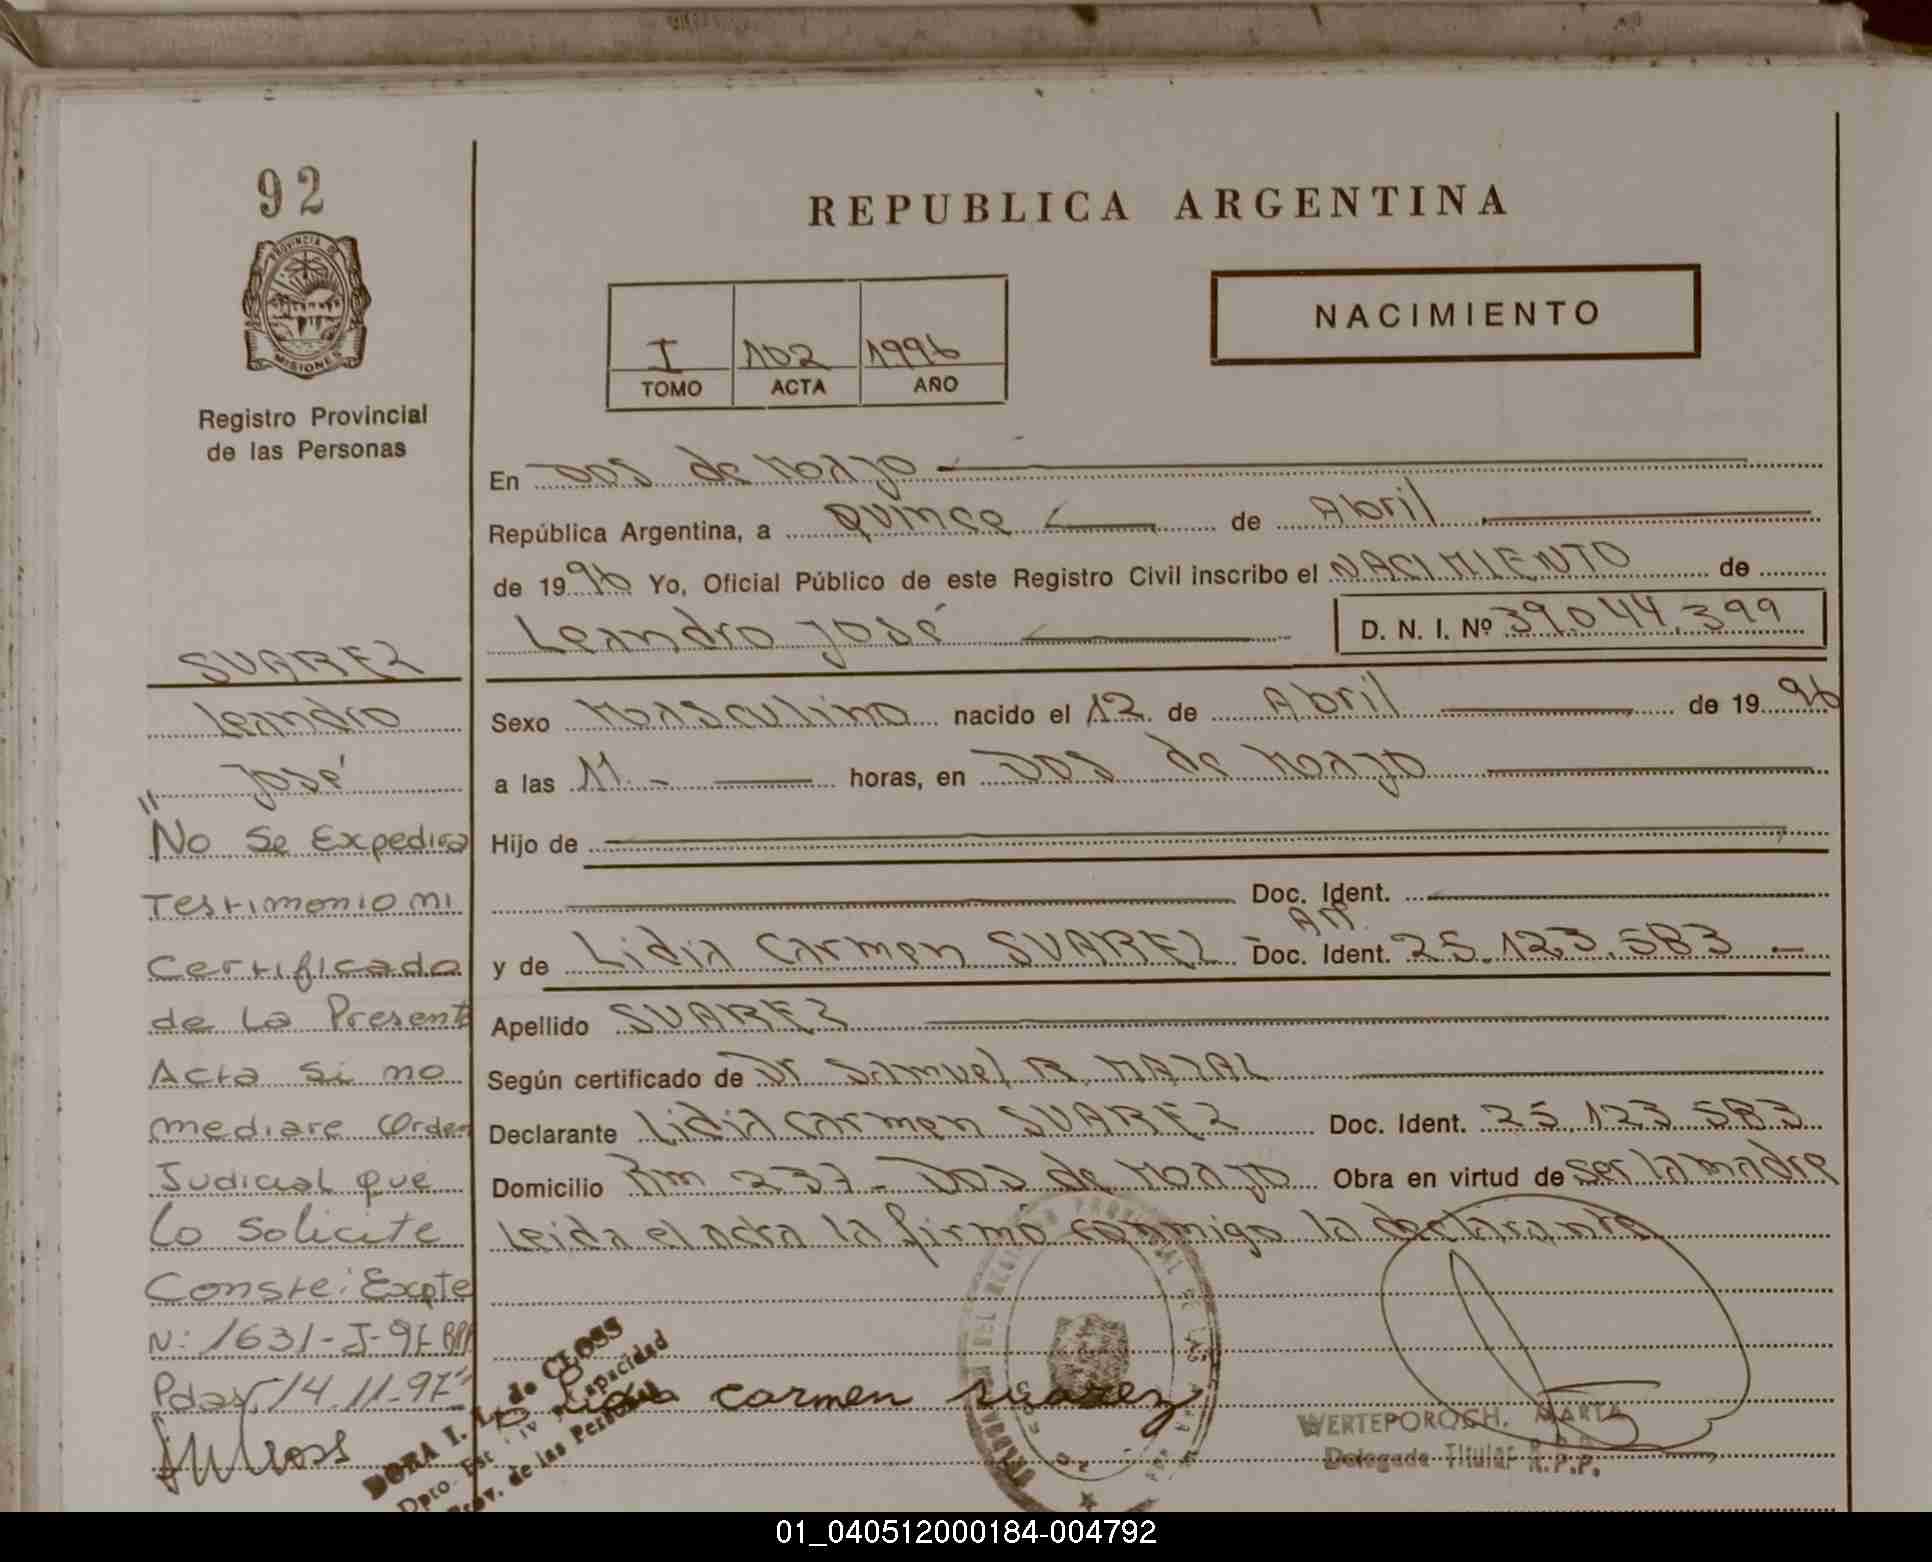 92
PROVINCIA DE
MISIONES
Registro Provincial
de las Personas
REPUBLICA ARGENTINA
NACIMIENTO
I 102 1996
TOMO ACTA AÑO
En Dos de Mayo
República Argentina, a Quince de Abril
de 1996 Yo, Oficial Público de este Registro Civil inscribo el NACIMIENTO de
Leandro José D. N. I. Nº 39.044.399
Sexo Masculino nacido el 12 de Abril de 1996
a las 11.- horas, en Dos de Mayo
Hijo de
Doc. Ident.
y de Lidia Carmen SUAREZ - Doc. Ident. 25.123.583.-
Apellido SUAREZ
Según certificado de Dr Samuel R.
Declarante Lidia Carmen SUAREZ Doc. Ident. 25.123.583
Domicilio Km 237 - Dos de Mayo Obra en virtud de ser la madre
Leida el acta la firmó conmigo la declarante
SUAREZ
Leandro
José
"No Se Expedira
Testimonio ni
Certificado
de La Presente
Acta Si no
mediare Orden
Judicial que
Lo Solicite
Conste: Expte
N: 1631-J-97
Pdas, 14.11-97"
DORA I. de CLOSS
Capacidad
Prov. de las Personas
carmen suarez
WERTEPOROCH, MARTA
Delegada Titular R.P.P.
01_040512000184-004792